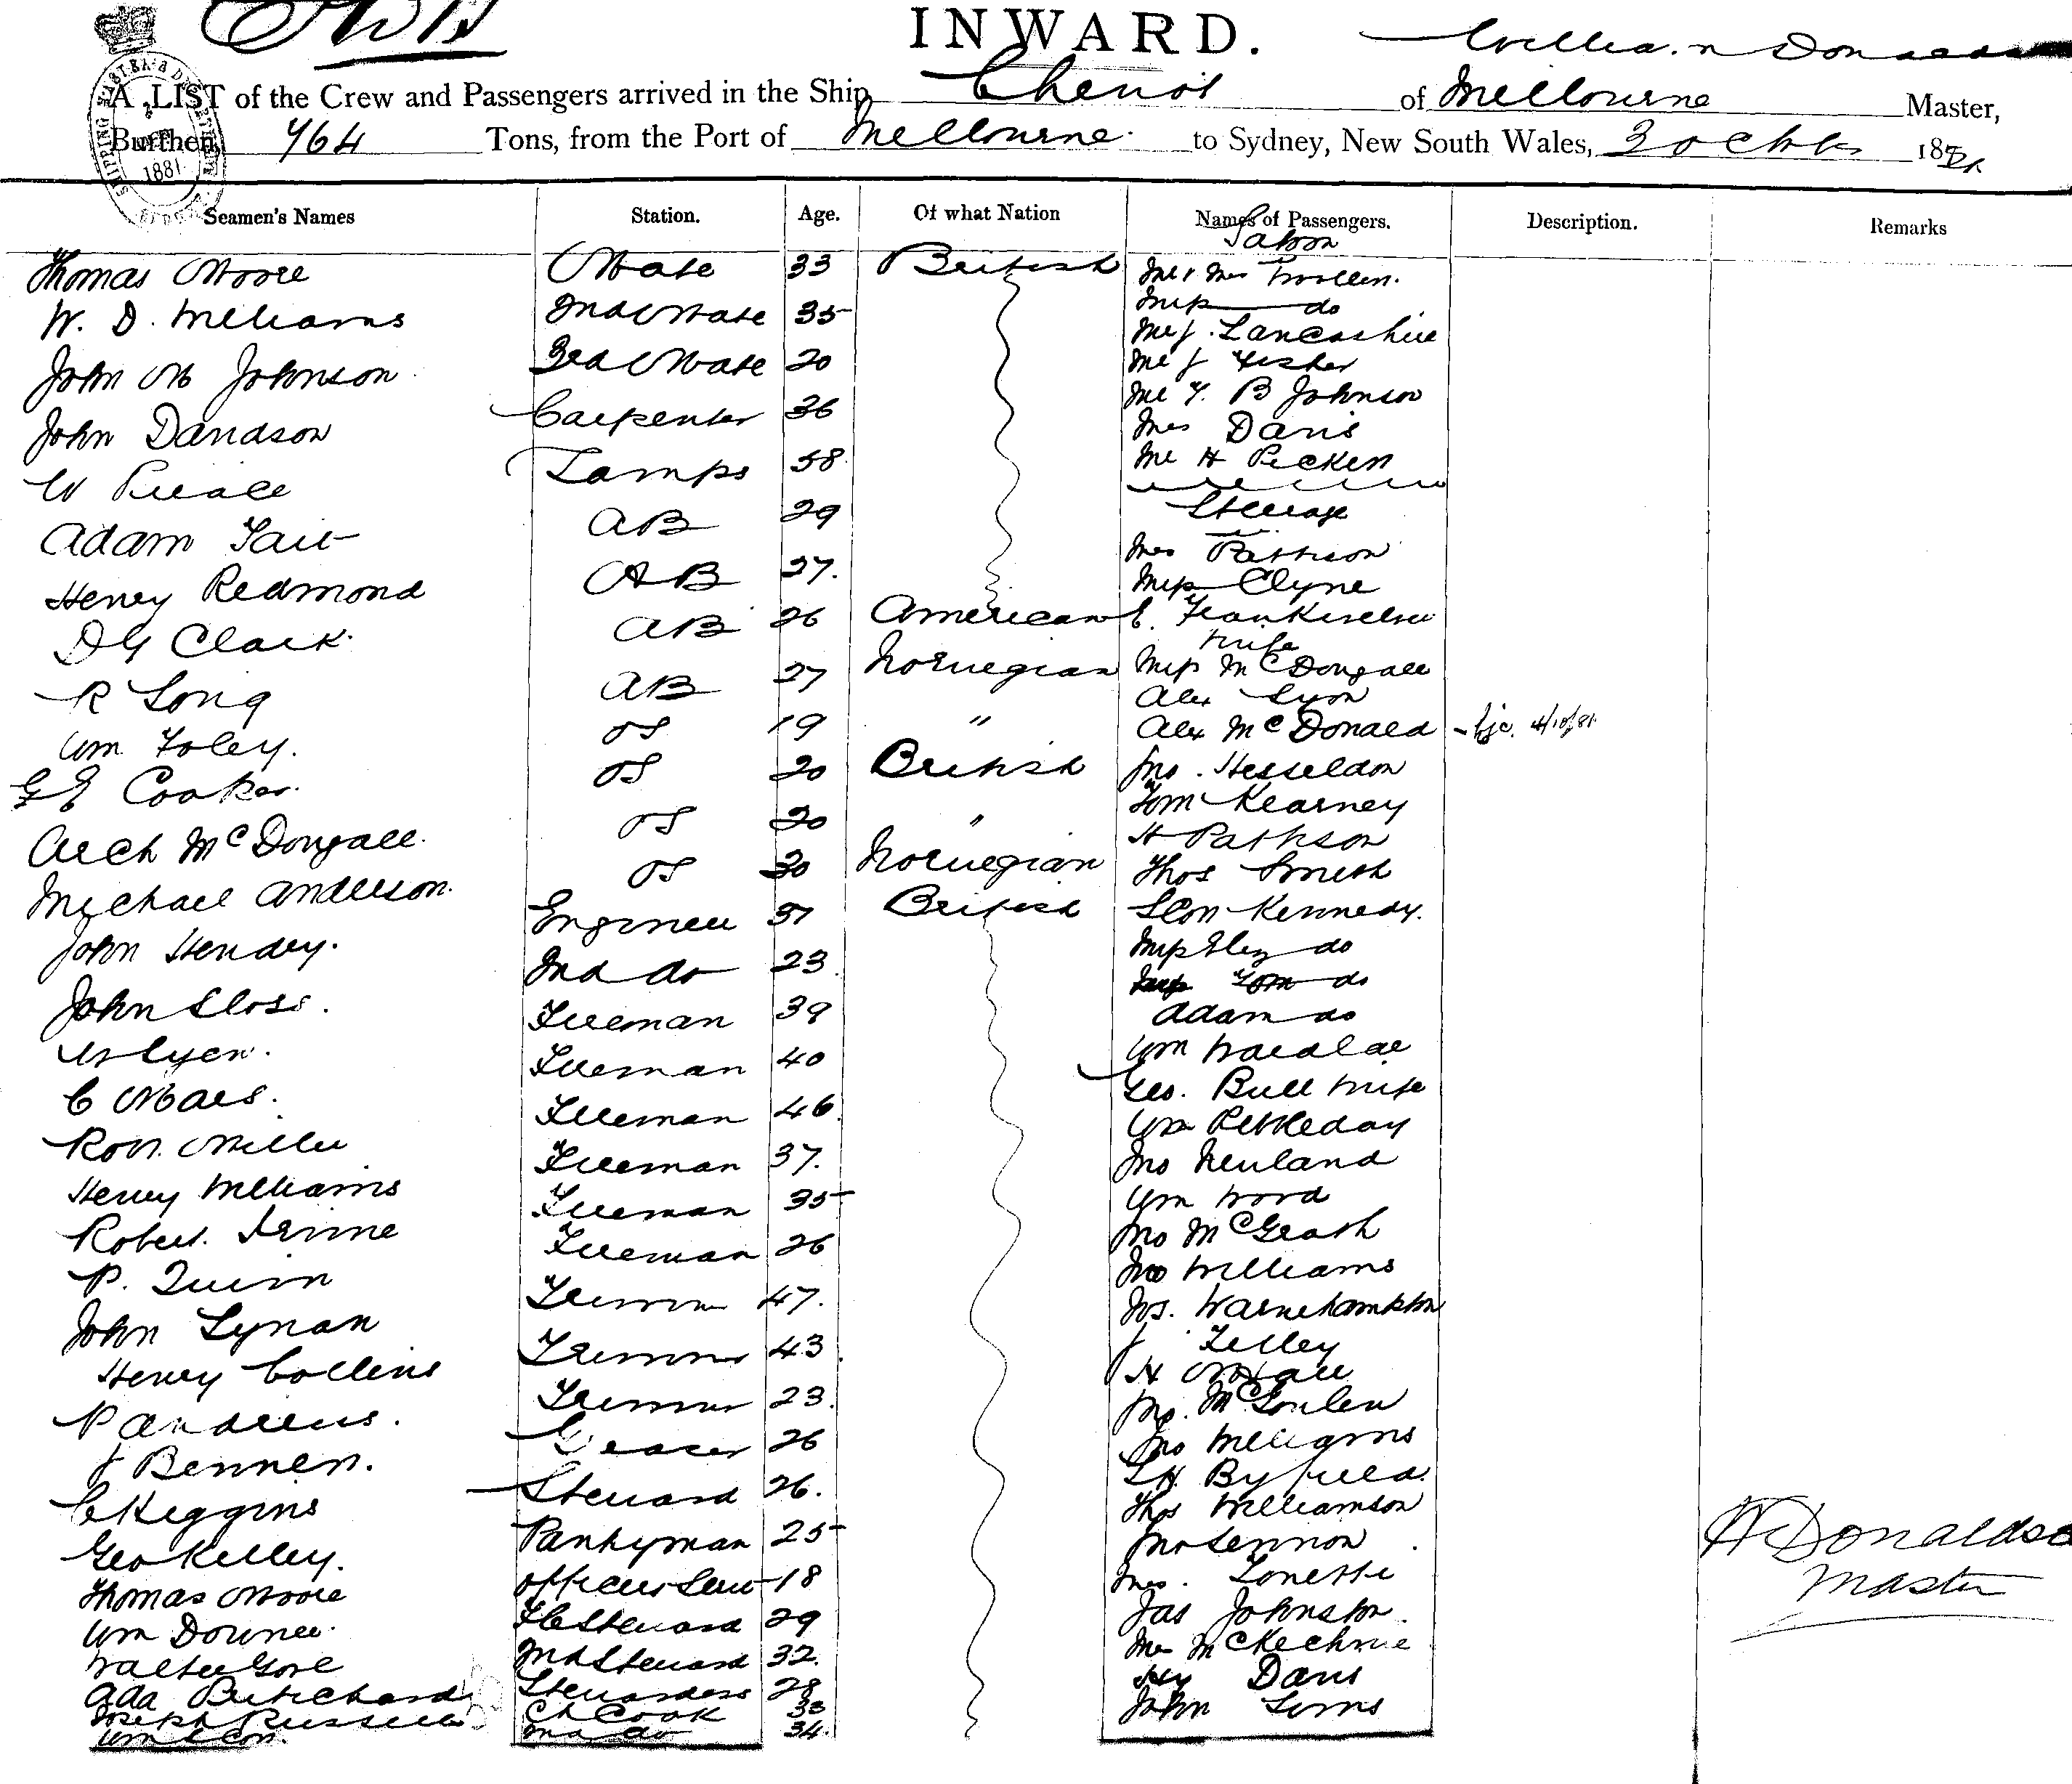 INWARD.
William Donaldson
A LIST of the Crew and Passengers arrived in the Ship Cheviot of Melbourne Master,
Burthen 764 Tons, from the Port of Melbourne to Sydney, New South Wales, 3 Octbr 1881
SHIPPING MASTER'S DEPARTMENT 1881
Seamen's Names Station. Age. Of what Nation Names of Passengers. Description. Remarks
Saloon
Thomas Moore Mate 33 British Mr & Mrs
W. D. Williams 2nd Mate 35 Miss do
Mr J. Lancashire
John M Johnson 3rd Mate 20 Mr J Fisher
Mr F. B Johnson
John Davidson Carpenter 36 Mrs Davis
W Pearce Lamps 58 Mr H Pecken
Steerage
Adam Tait AB 29 Mrs Pattison
Henry Redmond AB 27. Miss Clyne
D G Clark AB 26 American E.
wife
R Long AB 27 Norwegian Miss McDougall
Alex Lyon
Wm Foley. OS 19 " Alex McDonald 4/10/81
G E Cooker. OS 20 British Jno. Hesseldon
Tom Kearney
Arch McDougall. OS 20 " H Pattison
Michael Anderson. OS 30 Norwegian Thos Smith
John Hendry. Engineer 37 British Kennedy.
Miss Eliz do
John Sloss. 2nd do 23 Tom do
Fireman 39 Adam do
W Lyen. Fireman 40 Wm Wardlae
C Mars. Fireman 46 Geo. Bull wife
Wm Pettleday
Robt. Miller Fireman 37. Jno Newland
Henry Williams Fireman 35 Wm Wood
Robert. Irvine Fireman 26 Jno McGrath
P. Quinn Trimmer 47. Jno Williams
Jos. Warnehampton
John Lynan Trimmer 43 J Tilley
Henry Collins Trimmer 23. H Hall
P Andrews. Greaser 26 Jno.
J Bennen. Steward 26. Jno Williams
L H. Byfield.
C Keggins Pantryman 25 Thos Williamson
Geo Kelley. Officers Serv 18 Jno Lennon
Thomas Moore F C Steward 29 Mrs. Tonetti
Wm Downee. 2nd Steward 32. Jas Johnston.
Walter Gore Stewardess 28 Mrs McKechnie
Ada Pritchard Ch Cook 33 Hy Davis
Joseph Russell 2nd do 34. John Sims
Wm
W Donaldson
Master